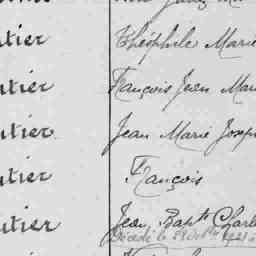 utier Théophile Marie
utier François Jean Mari
utier Jean Marie Josep
utier François
utier Jean Bapte Charle
Décédé le 1921 à